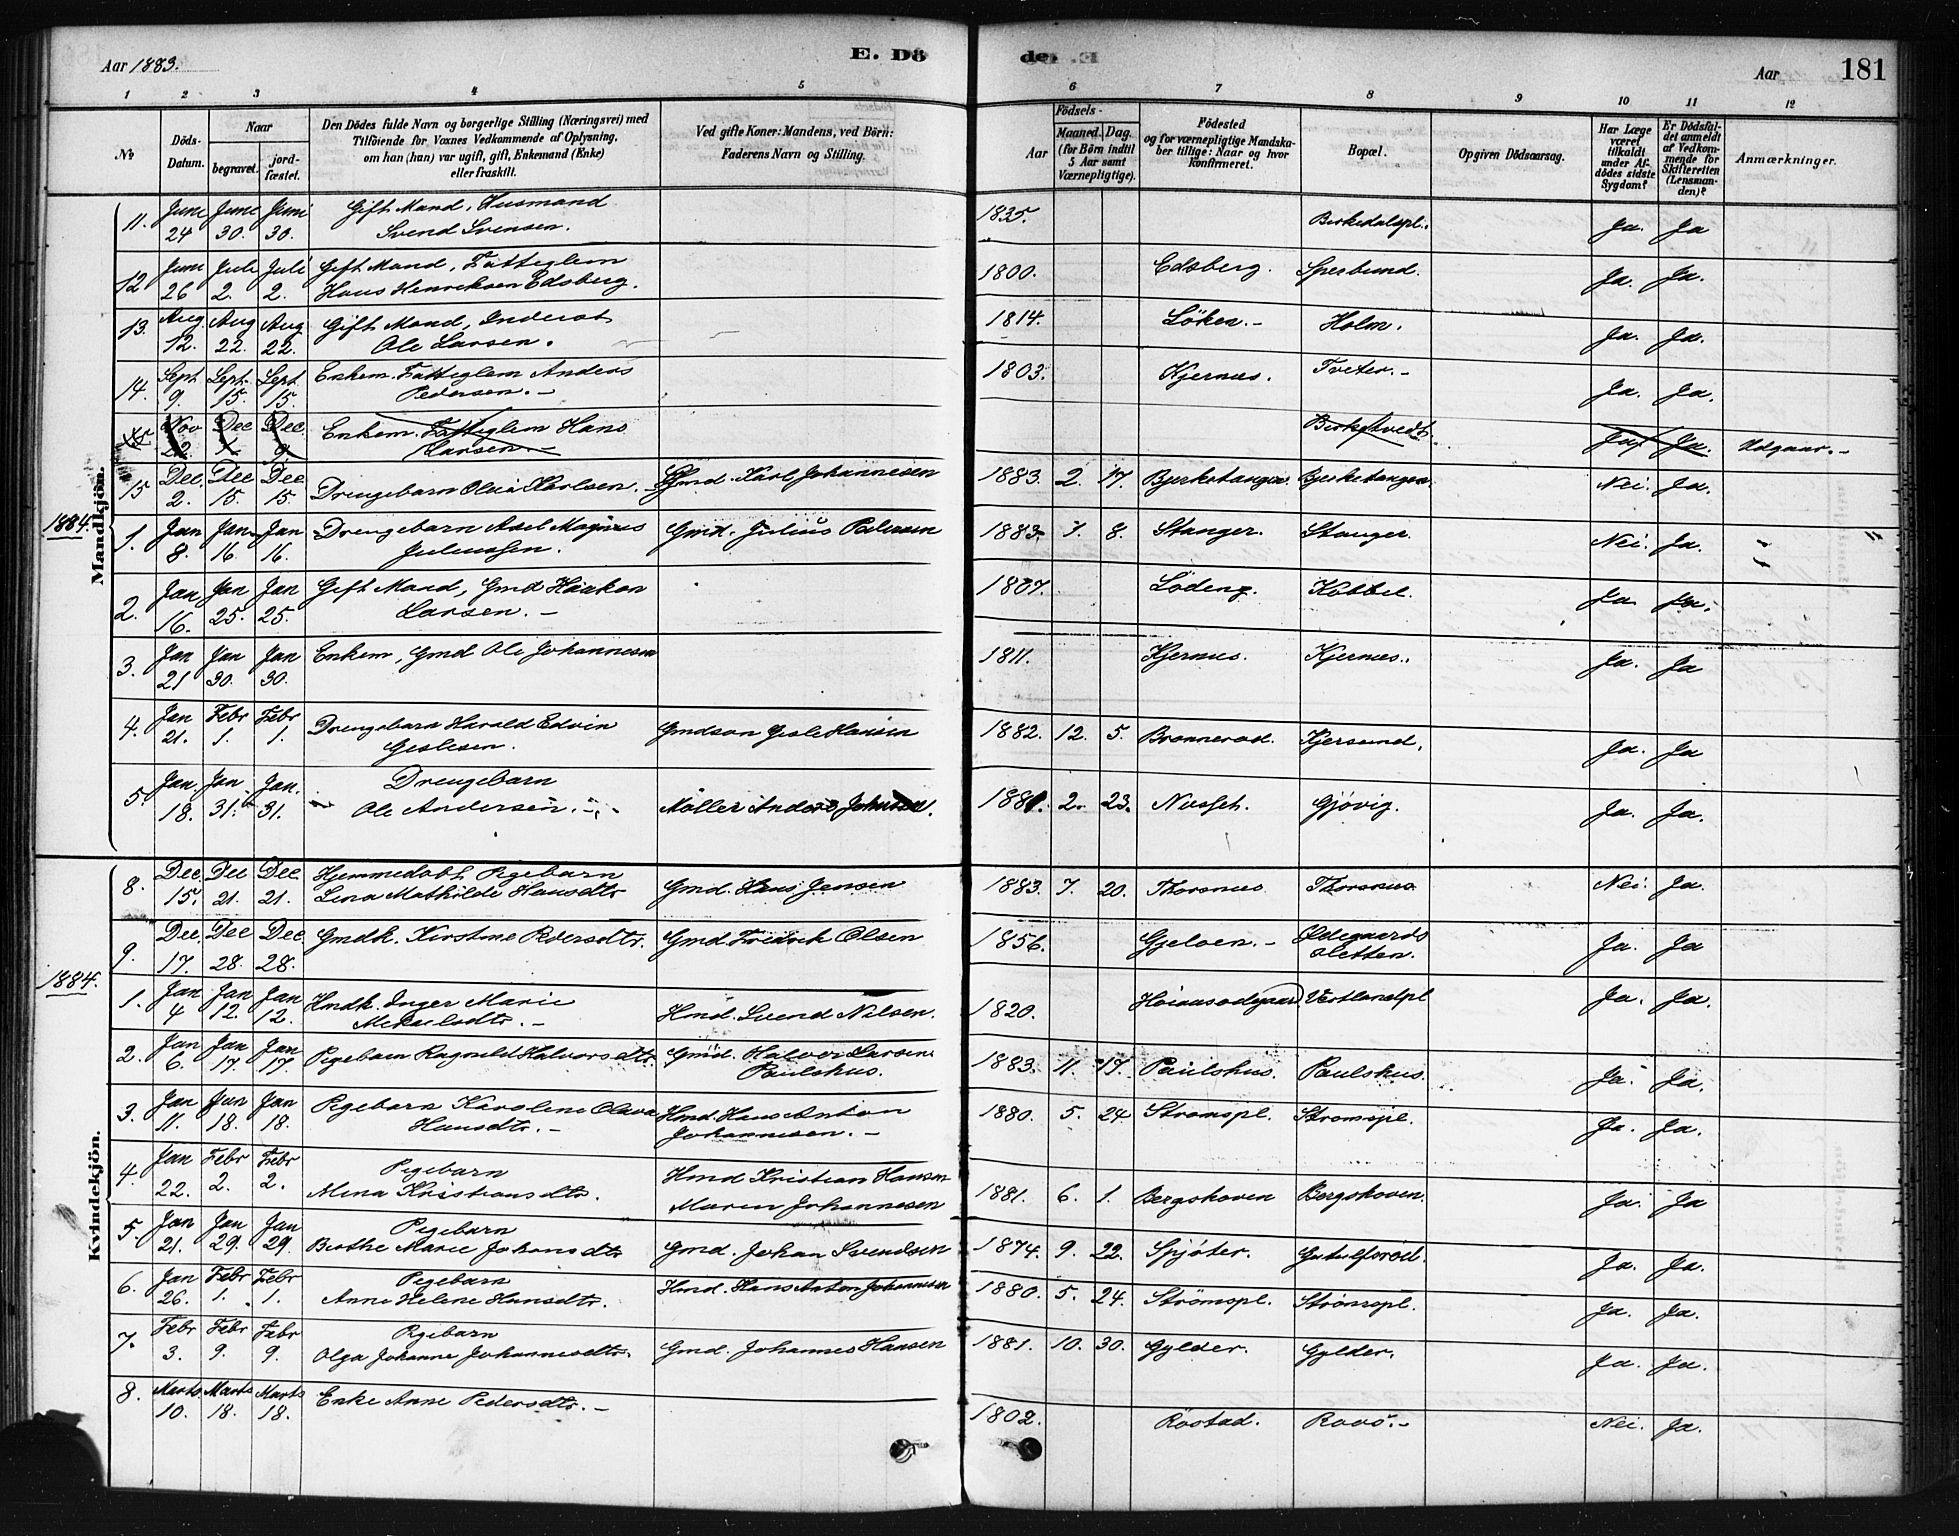 Aar 1883.
E. Dö
de. E
Aar
181
1 2 3 4 5 6 7 8 9 10 11 12
No
Döds-Datum.
Naar
begravet.
jord-fæstet.
Den Dödes fulde Navn og borgerlige Stilling (Næringsvei) med
Tilföiende for Voxnes Vedkommende af Oplysning,
om han (hun) var ugift, gift, Enkemand (Enke)
eller fraskilt.
Ved gifte Koner: Mandens, ved Börn:
Faderens Navn og Stilling.
Födsels-
Aar
Maaned. Dag.
(for Börn indtil
5 Aar samt
Værnepligtige).
Födested
og for værnepligtige Mandska-
ber tillige: Naar og hvor
konfirmeret.
Bopæl.
Opgiven Dödsaarsag.
Har Læge
været
tilkaldt
under Af-
dödes sidste
Sygdom?
Er Dödsfal-
det anmeldt
af Vedkom-
mende for
Skifteretten
(Lensman-
den)?
Anmærkninger.
Mandkjön.
11. Juni 24 Juni 30. Juni 30. Gift Mand, Husmand
Svend Svensen. 1835. Birkedalspl. Ja. Ja
12 Juni 26 Juli 2. Juli 2. Gift Mand, Fattiglem
Hans Henriksen Edsberg. 1800. Edsberg. Sperbund. Ja. Ja.
13. Aug. 12. Aug 22. Aug 22. Gift Mand, Inderst
Ole Larsen. 1814. Löken.- Holm. Ja. Ja.
14. Sept 9. Sept. 15. Sept. 15. Enkem. Fattiglem Anders
Pedersen.- 1803. Kjernes. Tveter.- Ja. Ja.
15 Nov 22. Dec Dec 9 Enkem. Fattiglem Hans
Larsen.- Ja. Ja. Udgaar.-
15 Dec. 2. Dec 15. Dec. 15. Drengebarn Olai Karlsen. Gmd. Karl Johannesen 1883. 2. 17. Bjerketangen. Bjerketangen. Nei. Ja.
1884.
1. Jan 8. Jan 16. Jan 16. Drengebarn Axel Magnus
Juliussen. Gmd. Julius Pedersen 1883. 7. 8. Stanger. Stanger. Nei. Ja.
2. Jan 16. Jan 25. Jan 25. Gift Mand, Gmd Haakon
Larsen.- 1807. Lödeng. Kobbel. Ja. Ja.
3. Jan 21 Jan 30. Jan 30. Enkem, Gmd Ole Johannesen 1811. Kjernes. Kjernes. Ja. Ja
4. Jan 21. Febr 1. Febr 1. Drengebarn Harald Edvin
Geslesen. Gmdsøn Gesle Hansen 1882. 12. 5. Bronnerød. Kjersund. Ja. Ja
5. Jan. 18. Jan 31. Jan. 31. Drengebarn
Ole Andersen. Möller Anders Johnsen. 1881. 2. 23. Gjøvig. Ja. Ja.
Kvindekjön.
8. Dec. 15. Dec 21. Dec 21. Hjemmedøbt Pigebarn
Lina Mathilde Hansdtr Gmd. Hans Jensen 1883. 7. 20. Thorsnes Thorsnes Nei. Ja.
9. Dec. 17. Dec 28. Dec 28. Gmdk. Kirstine Pedersdtr. Gmd. Fredrik Olsen 1856. Gjeloen.- Ødegaards
sletten. Ja. Ja
1884.
1. Jan 4 Jan 12. Jan 12. Hmdk. Inger Marie
Mikaelsdtr.- Hmd. Svend Nilsen. 1820. Vestlandpl Ja. Ja.
2. Jan 6. Jan 17. Jan 17. Pigebarn Ragnild Halvorsdtr. Gmd. Halvor Larsen
Paulshus. 1883. 11. 17. Paulshus. Paulshus. Ja. Ja.
3. Jan 11. Jan 18. Jan 18. Pigebarn Karoline Olava
Hansdtr.- Hmd. Hans Anton
Johannesen.- 1880. 5. 24. Stromspl. Stromspl. Ja. Ja.
4. Jan 22. Febr 2. Febr 2. Pigebarn
Mina Kristiansdtr. Hmd Kristian Hansen
Maren Johannesen 1881. 6. 1. Bergskoven Bergskoven. Ja. Ja
5. Jan 21. Jan 29. Jan 29. Pigebarn
Berthe Marie Johansdtr Gmd. Johan Svendsen 1874. 9. 22. Spjöter. Ja. Ja.
6. Jan 26. Febr 1. Febr 1. Pigebarn
Anne Helene Hansdtr. Hmd. Hans Anton Johannesen 1880. 5. 24. Strömspl. Strömspl. Ja. Ja.
7. Febr 3. Febr 9. Febr 9. Pigebarn
Olga Johanne Johannesdtr. Gmd. Johannes Hansen 1881. 10. 30. Gylder. Gylder. Ja. Ja.
8. Marts 10. Marts 18. Marts 18. Enke Anne Pedersdtr.- 1802. Röstad. Roos.- Nei. Ja.